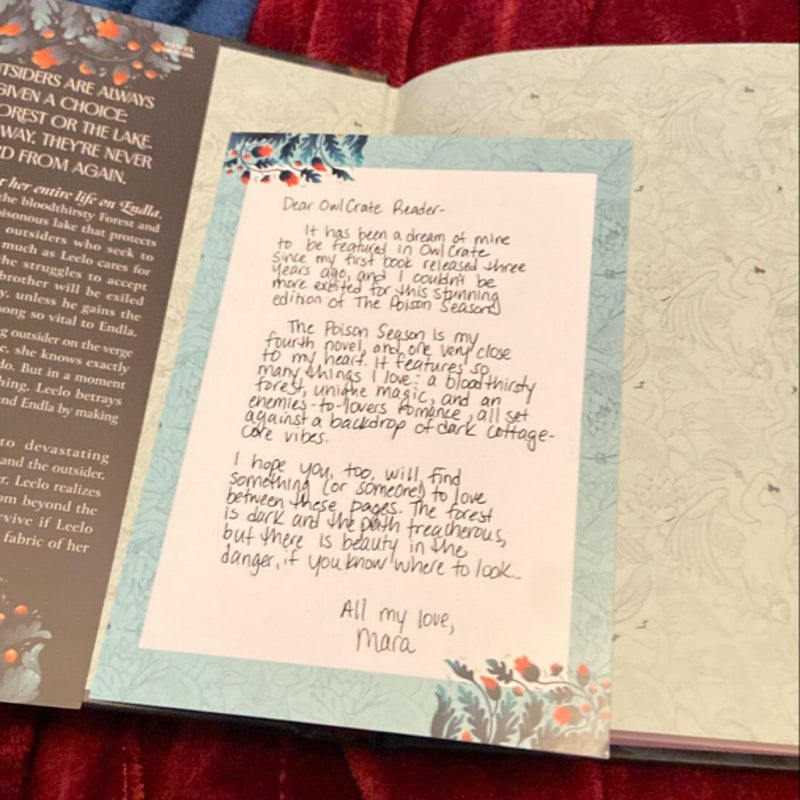 OUTSIDERS ARE ALWAYS
GIVEN A CHOICE:
FOREST OR THE LAKE.
WAY, THEY'RE NEVER
FROM AGAIN.
her entire life on Endla,
the bloodthirsty Forest and
poisonous lake that protects
outsiders who seek to
much as Leelo cares for
she struggles to accept
brother will be exiled
unless he gains the
song so vital to Endla.
outsider on the verge
she knows exactly
do. But in a moment
Leelo betrays
and Endla by making
to devastating
and the outsider,
Leelo realizes
from beyond the
survive if Leelo
fabric of her
Dear OwlCrate Reader-
It has been a dream of mine
to be featured in OwlCrate
since my first book released three
years ago, and I couldn't be
more excited for this stunning
edition of The Poison Season!
The Poison Season is my
fourth novel, and one very close
to my heart. It features so
many things I love: a bloodthirsty
forest, unique magic, and an
enemies-to-lovers romance, all set
against a backdrop of dark cottage-
core vibes.
I hope you, too, will find
something (or someone!) to love
between these pages. The forest
is dark and the path treacherous,
but there is beauty in the
danger, if you know where to look...
All my love,
Mara